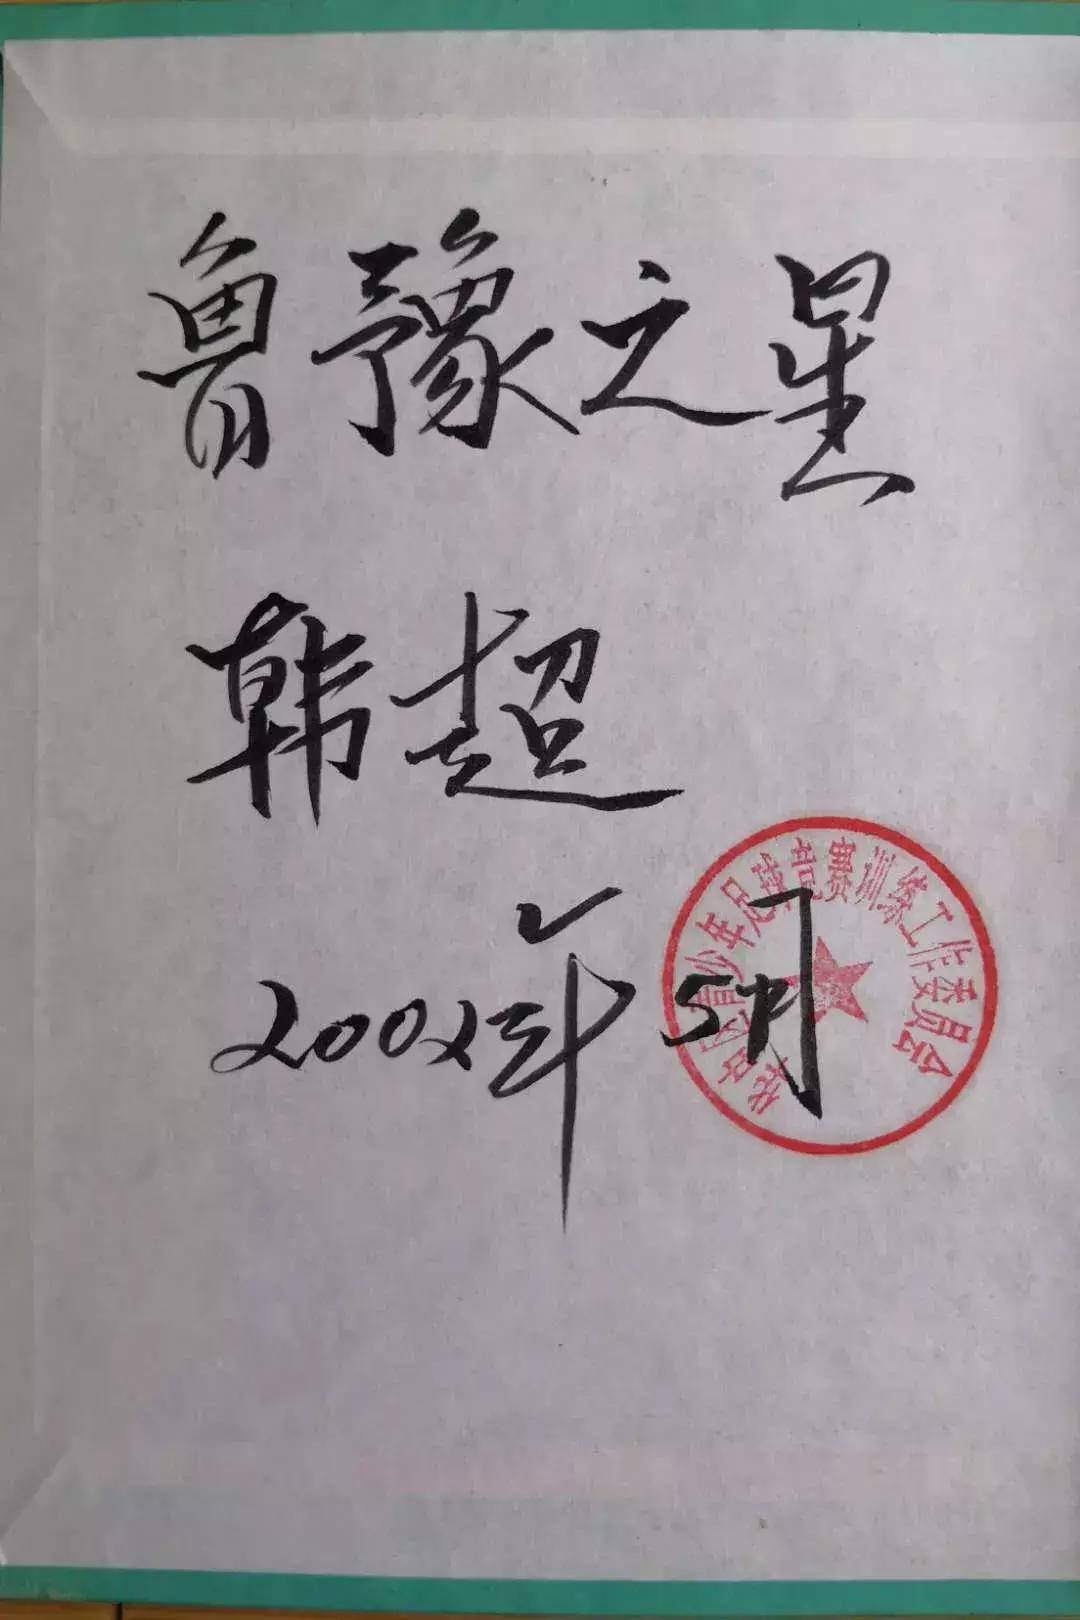 鲁豫之星
韩超
2002年5月
华中区青少年足球竞赛训练工作委员会